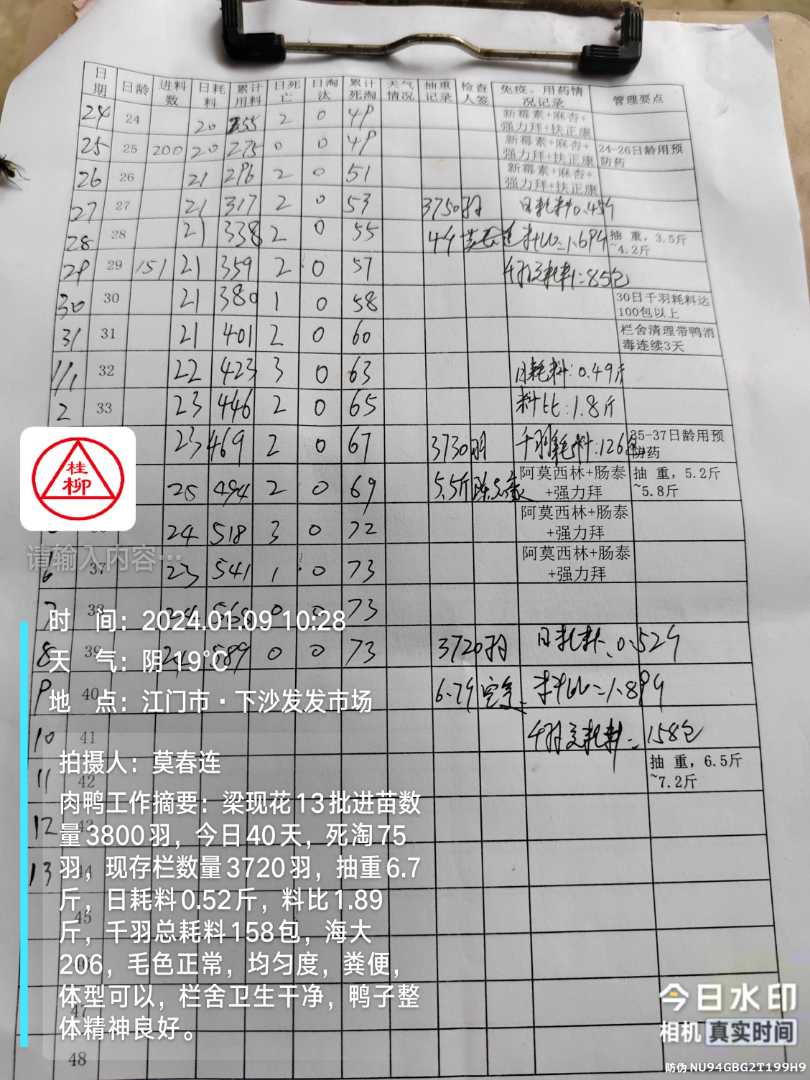 日期 日龄 进料数 日耗料 累计用料 日死亡 日淘汰 累计死淘 天气情况 抽重记录 检查人签 免疫、用药情况记录 管理要点
24 24 20 255 2 0 49 新霉素+麻杏+强力拜+扶正康
25 25 200 20 275 0 0 49 新霉素+麻杏+强力拜+扶正康 24-26日龄用预防药
26 26 21 296 2 0 51 新霉素+麻杏+强力拜+扶正康
27 27 21 317 2 0 53 3750羽 日耗料0.45斤
28 28 21 338 2 0 55 料比1.69斤 抽 重,3.5斤~4.2斤
29 29 151 21 359 2 0 57 85包
30 30 21 380 1 0 58 30日千羽耗料达100包以上
31 31 21 401 2 0 60 栏舍清理带鸭消毒连续3天
1/1 32 22 423 3 0 63 日耗料:0.49斤
2 33 23 446 2 0 65 料比:1.8斤
23 469 2 0 67 3730羽 千羽耗料:126包 35-37日龄用预防药
25 494 2 0 69 5.5斤 阿莫西林+肠泰+强力拜 抽 重,5.2斤~5.8斤
24 518 3 0 72 阿莫西林+肠泰+强力拜
6 37 23 541 1 0 73 阿莫西林+肠泰+强力拜
7 38 0 0 73
8 39 0 0 73 3720羽 日耗料:0.52斤
9 40 6.7斤 料比=1.89斤
10 41 158包
11 42 抽 重,6.5斤~7.2斤
12
13
45
47
48
桂柳
请输入内容…
时 间:2024.01.09 10:28
天 气:阴 19℃
地 点:江门市·下沙发发市场
拍摄人:莫春连
肉鸭工作摘要:梁现花13批进苗数
量3800羽,今日40天,死淘75
羽,现存栏数量3720羽,抽重6.7
斤,日耗料0.52斤,料比1.89
斤,千羽总耗料158包,海大
206,毛色正常,均匀度,粪便,
体型可以,栏舍卫生干净,鸭子整
体精神良好。
今日水印
相机 真实时间
防伪 NU94GBG2T199H9